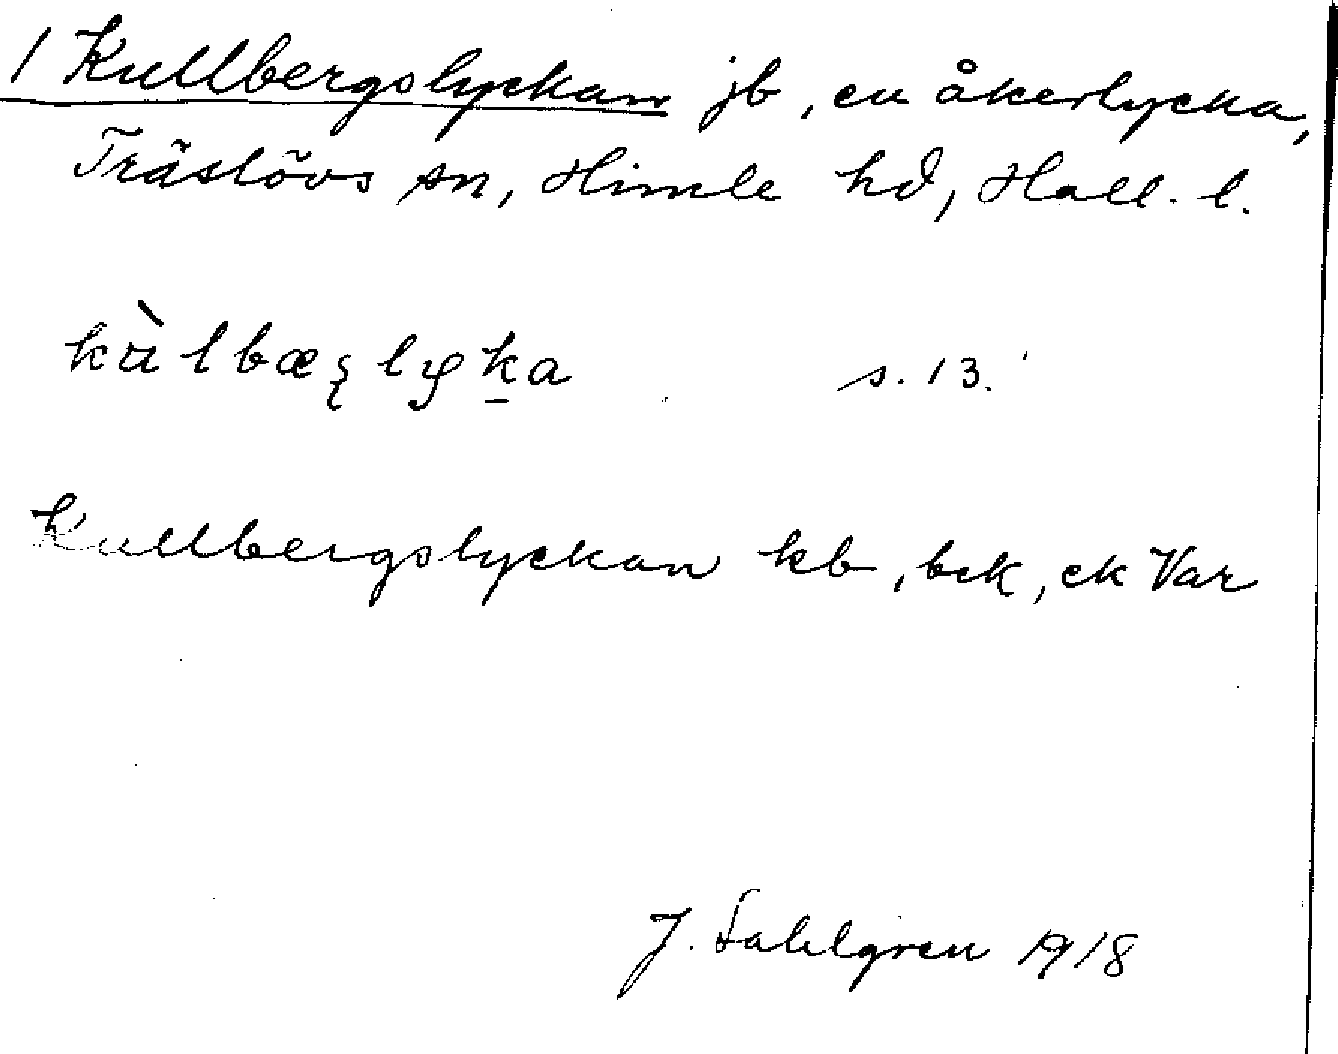 1 Kullbergslyckan jb, en åkerlycka,
Träslövs sn, Himle hd, Hall. l.
kùlbæʂlyka s. 13.
Kullbergslyckan kb, bck, ck Var
J. Sahlgren 1918